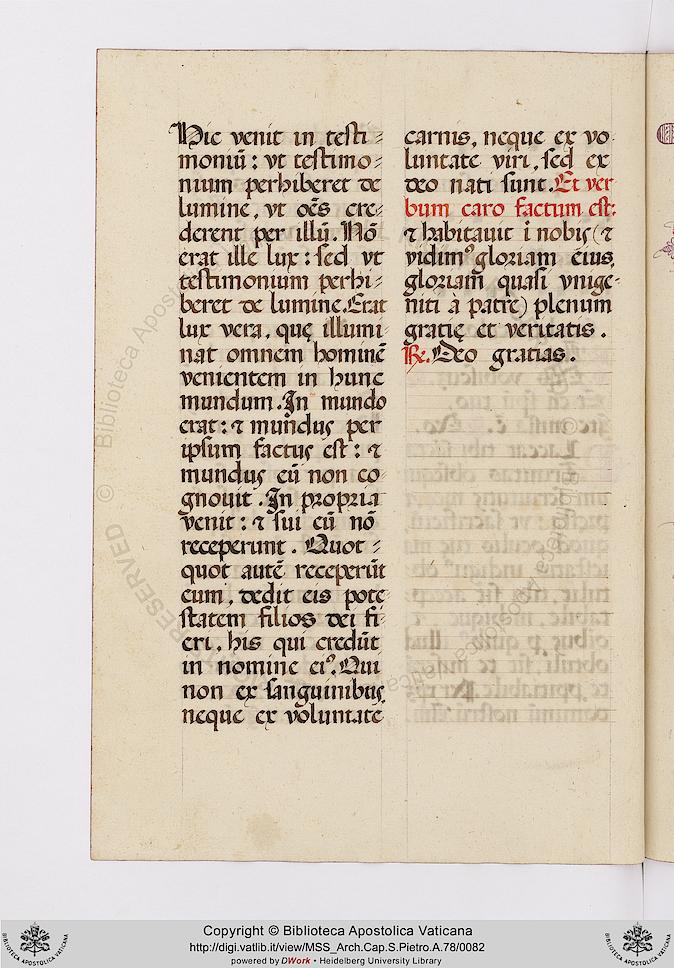 Hic venit in testi-
moniū : vt testimo-
nium perhiberet de
lumine, vt oēs cre-
derent per illū. Nō
erat ille lux : sed vt
testimonium perhi-
beret de lumine. Erat
lux vera, quę illumi-
nat omnem hominē
venientem in hunc
mundum. In mundo
erat : ⁊ mundus per
ipsum factus est : ⁊
mundus eū non co
gnouit. In propria
venit : ⁊ sui eū nō
receperunt. Quot-
quot autē receperūt
eum, dedit eis pote
statem filios dei fi-
eri, his qui credūt
in nomine eiꝰ. Qui
non ex sanguinibus,
neque ex voluntate
carnis, neque ex vo
luntate viri, sed ex
deo nati sunt. Et ver
bum caro factum est:
⁊ habitauit ī nobis (⁊
vidimꝰ gloriam eius,
gloriam̄ quasi vnige-
niti à patre) plenum
gratię et veritatis.
℞. Deo gratias.
RESERVED © Biblioteca Apostolica Vaticana
Copyright © Biblioteca Apostolica Vaticana
http://digi.vatlib.it/view/MSS_Arch.Cap.S.Pietro.A.78/0082
powered by DWork • Heidelberg University Library
BIBLIOTECA APOSTOLICA VATICANA
BIBLIOTECA APOSTOLICA VATICANA